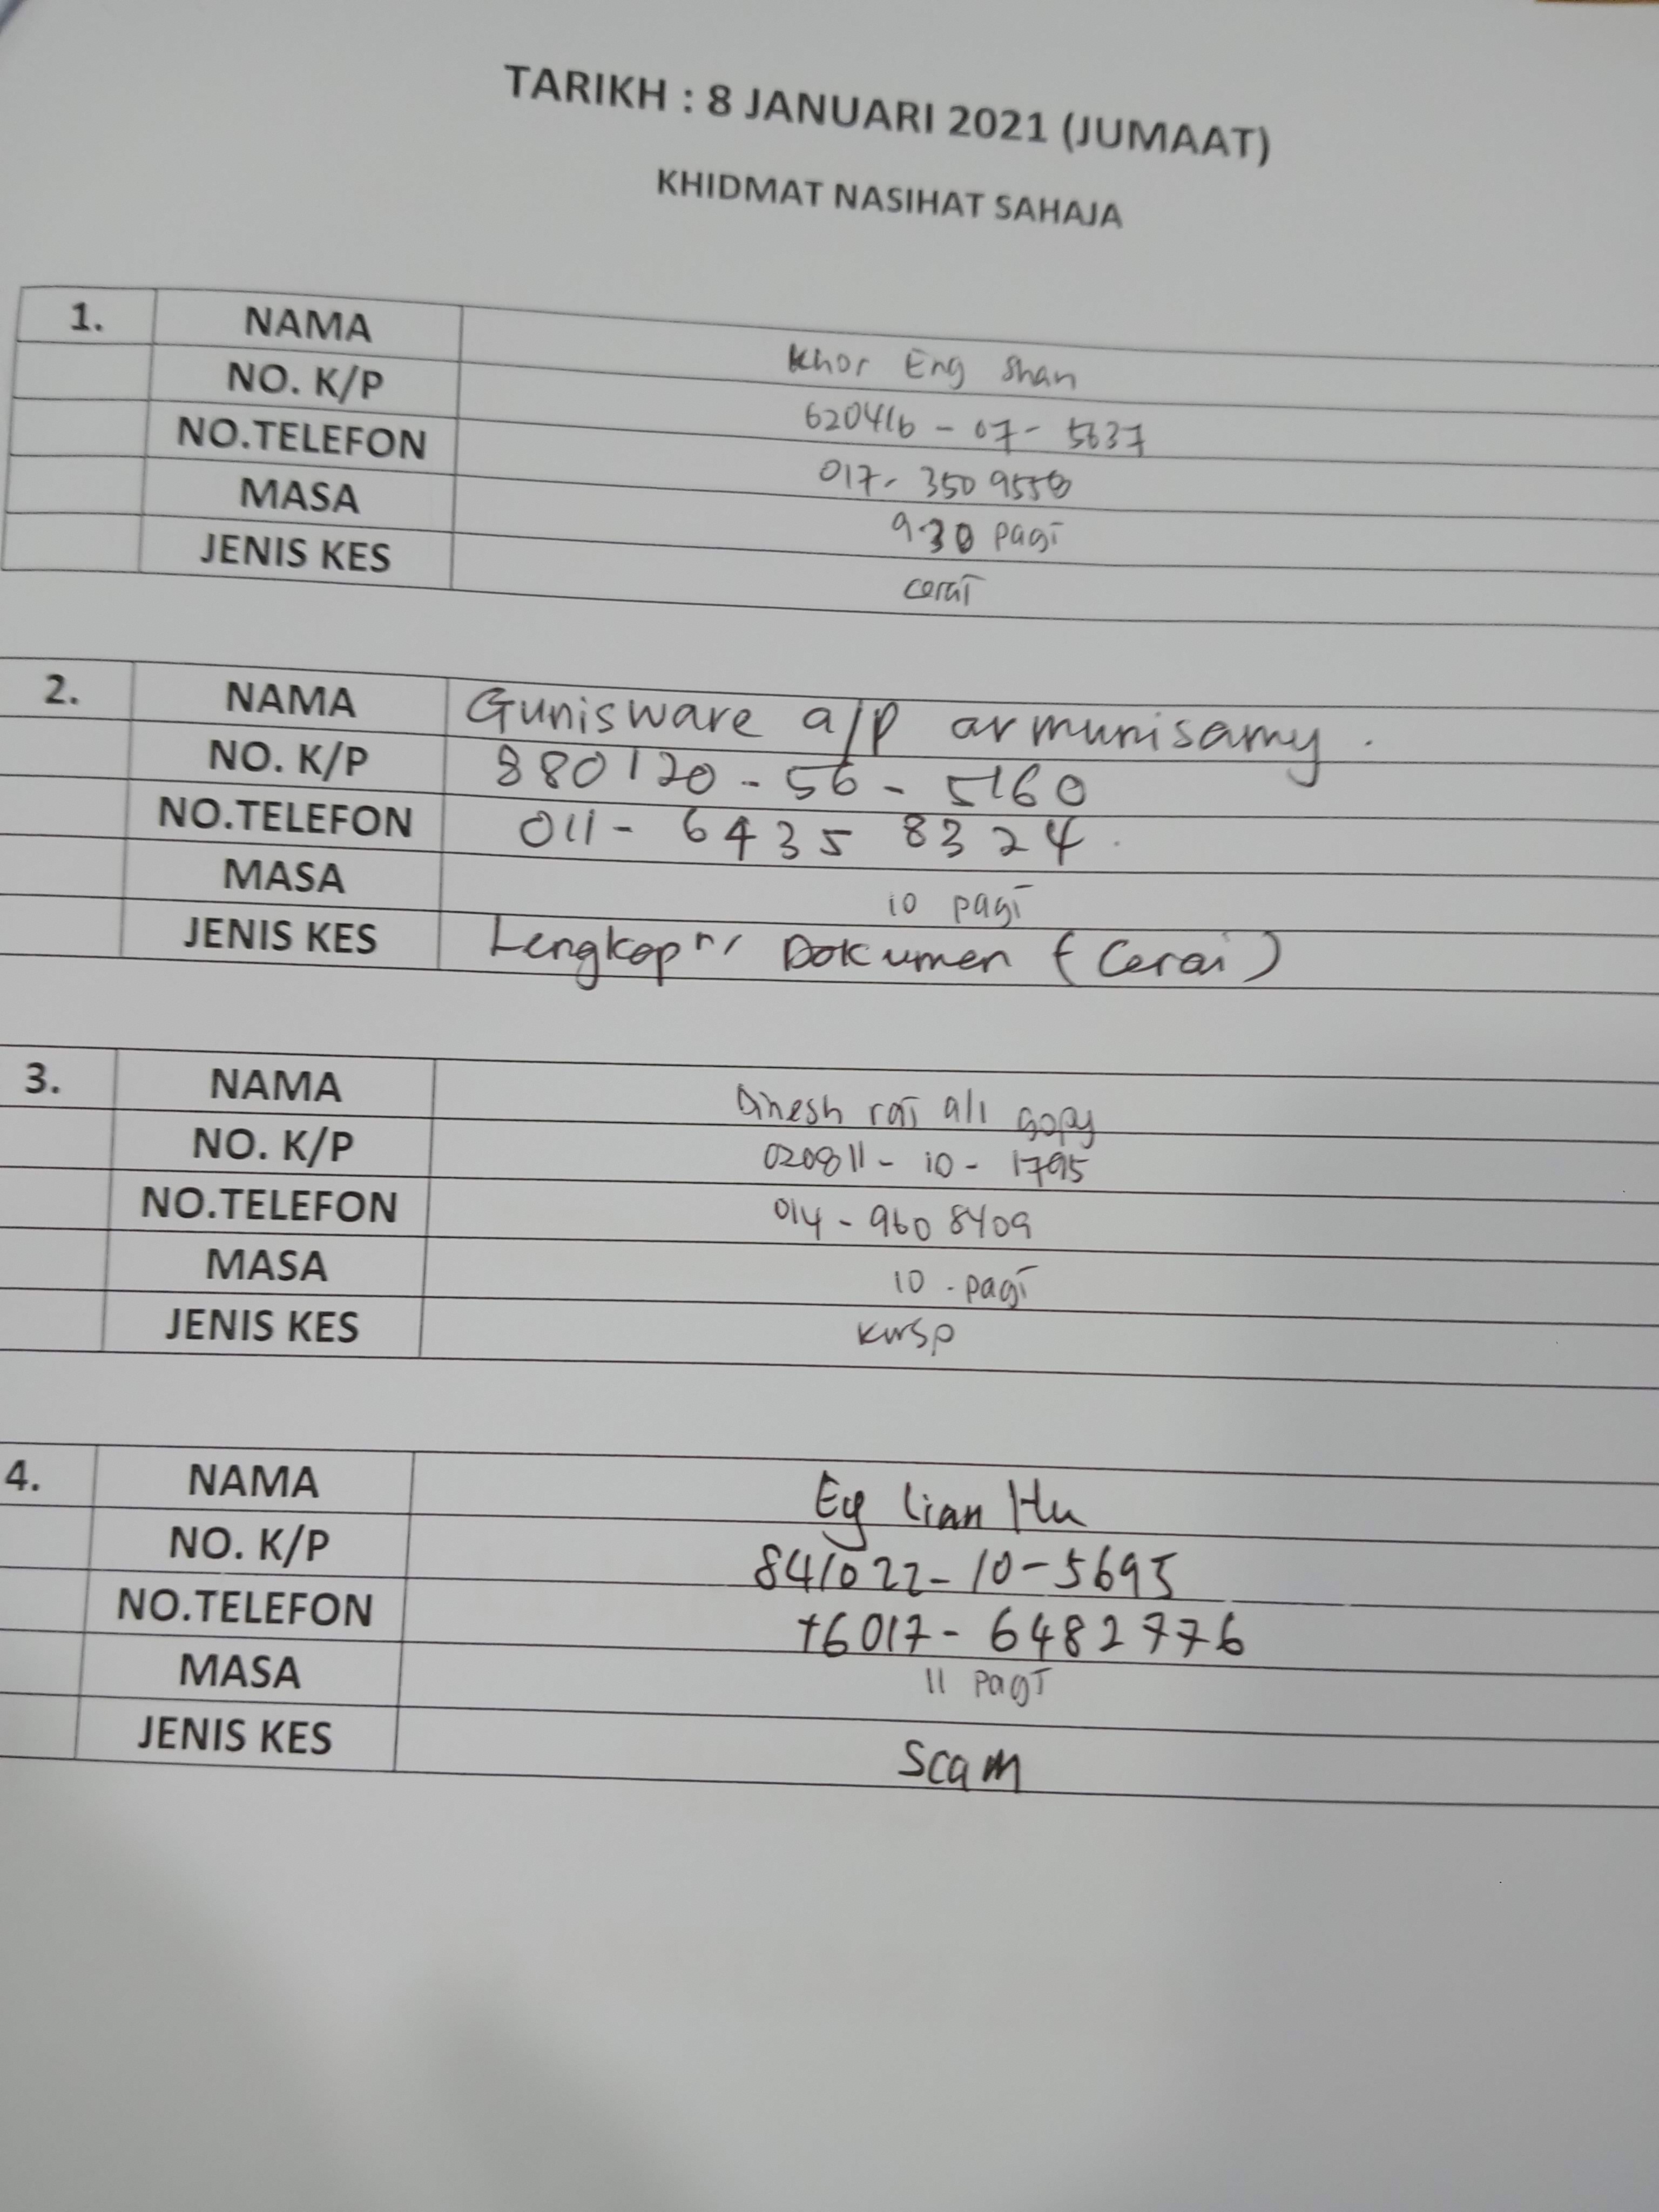 TARIKH : 8 JANUARI 2021 (JUMAAT)
KHIDMAT NASIHAT SAHAJA
1. NAMA Khor Eng Shan
NO. K/P 620416 - 07 - 5637
NO.TELEFON 017- 350 9558
MASA 9.30 pagi
JENIS KES cerai
2. NAMA Gunisware a/p armunisamy.
NO. K/P 880120 - 56 - 5160
NO.TELEFON 011 - 6435 8324.
MASA 10 pagi
JENIS KES Dokumen (Cerai)
3. NAMA Dinesh raj a/l gopy
NO. K/P 020811 - 10 - 1795
NO.TELEFON 014 - 960 8409
MASA 10 - pagi
JENIS KES KWSP
4. NAMA Lian
NO. K/P 841022-10-5695
NO.TELEFON +6017- 6482776
MASA 11 pagi
JENIS KES Scam